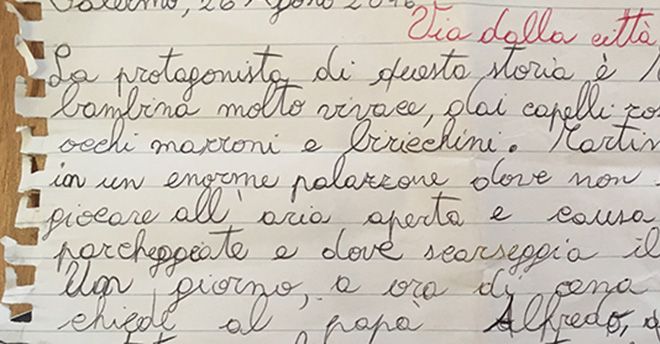 Palermo, 26 Agosto 2016
Via dalla città
La protagonista di questa storia è
bambina molto vivace, dai capelli
occhi marroni e birichini. Martin
in un enorme palazzone dove non
giocare all'aria aperta e causa
parcheggiate e dove scarseggia il
Un giorno, a ora di cena
chiedi al papà Alfredo,